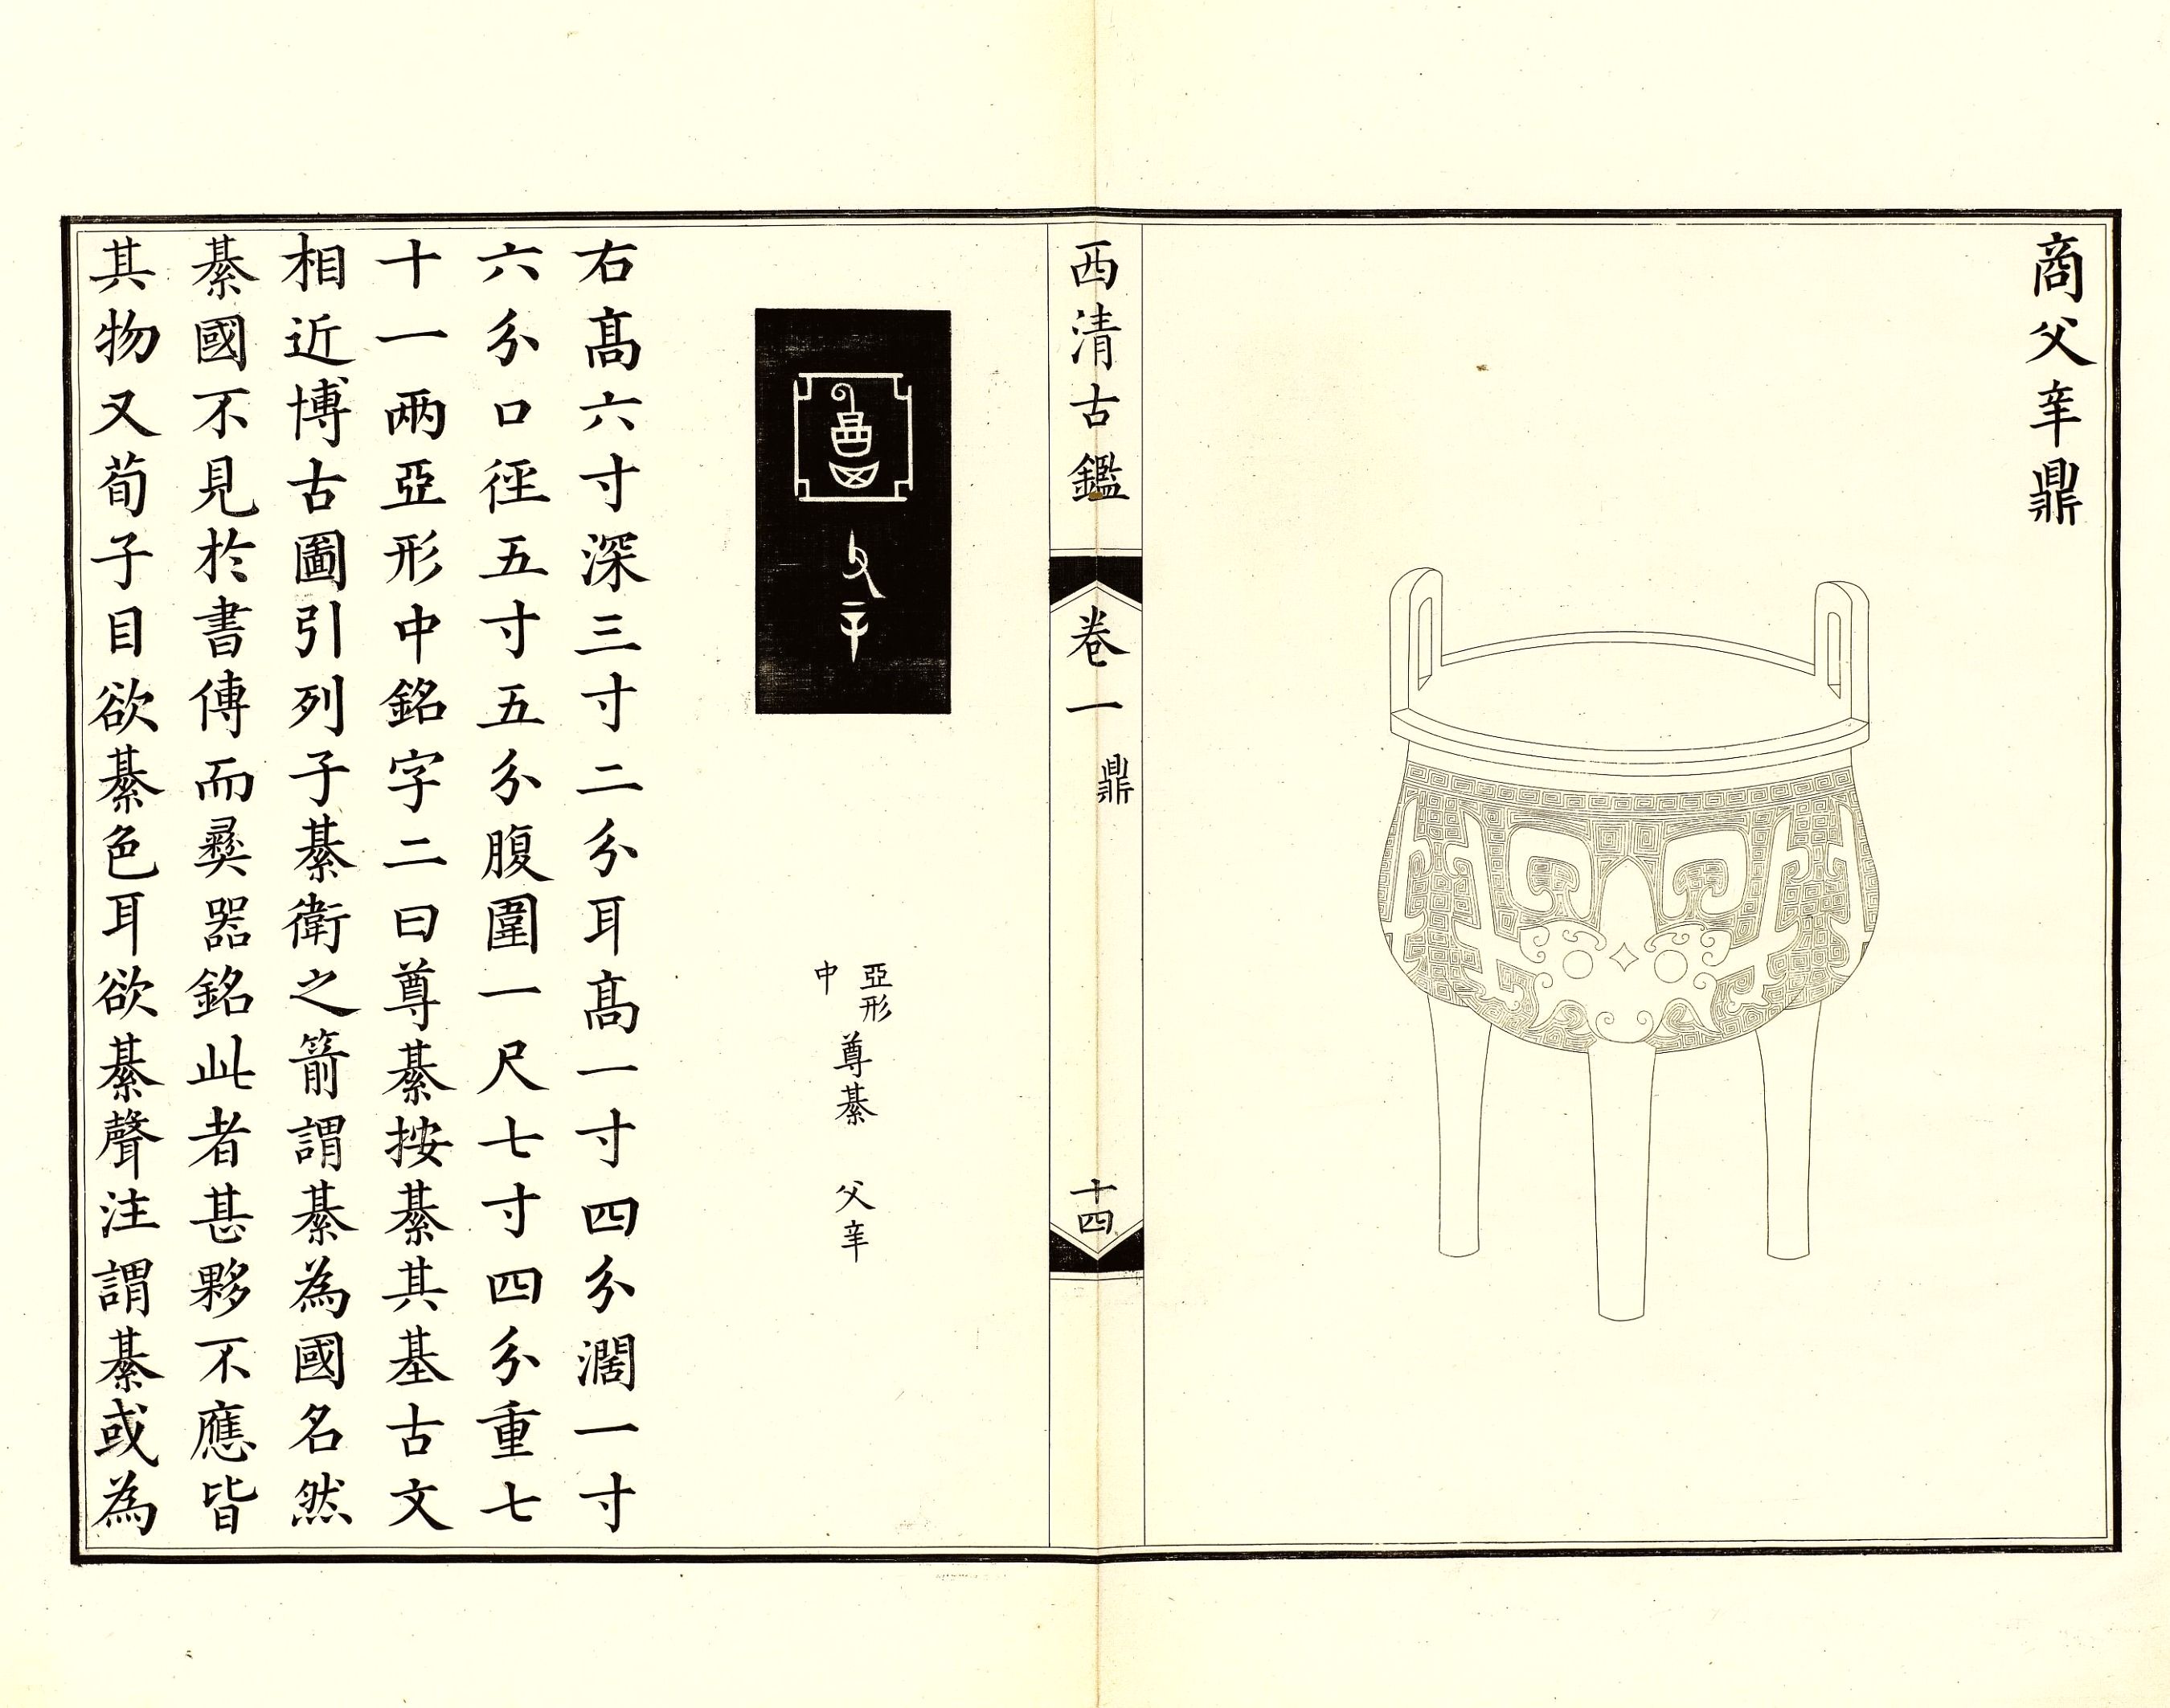 商父辛鼎
西清古鑑
卷一
鼎
十四
亞形
中
尊綦
父辛
右高六寸深三寸二分耳高一寸四分濶一寸
六分口徑五寸五分腹圍一尺七寸四分重七
十一兩亞形中銘字二曰尊綦按綦其基古文
相近博古圖引列子綦衛之箭謂綦為國名然
綦國不見於書傳而彞器銘此者甚夥不應皆
其物又荀子目欲綦色耳欲綦聲注謂綦或為